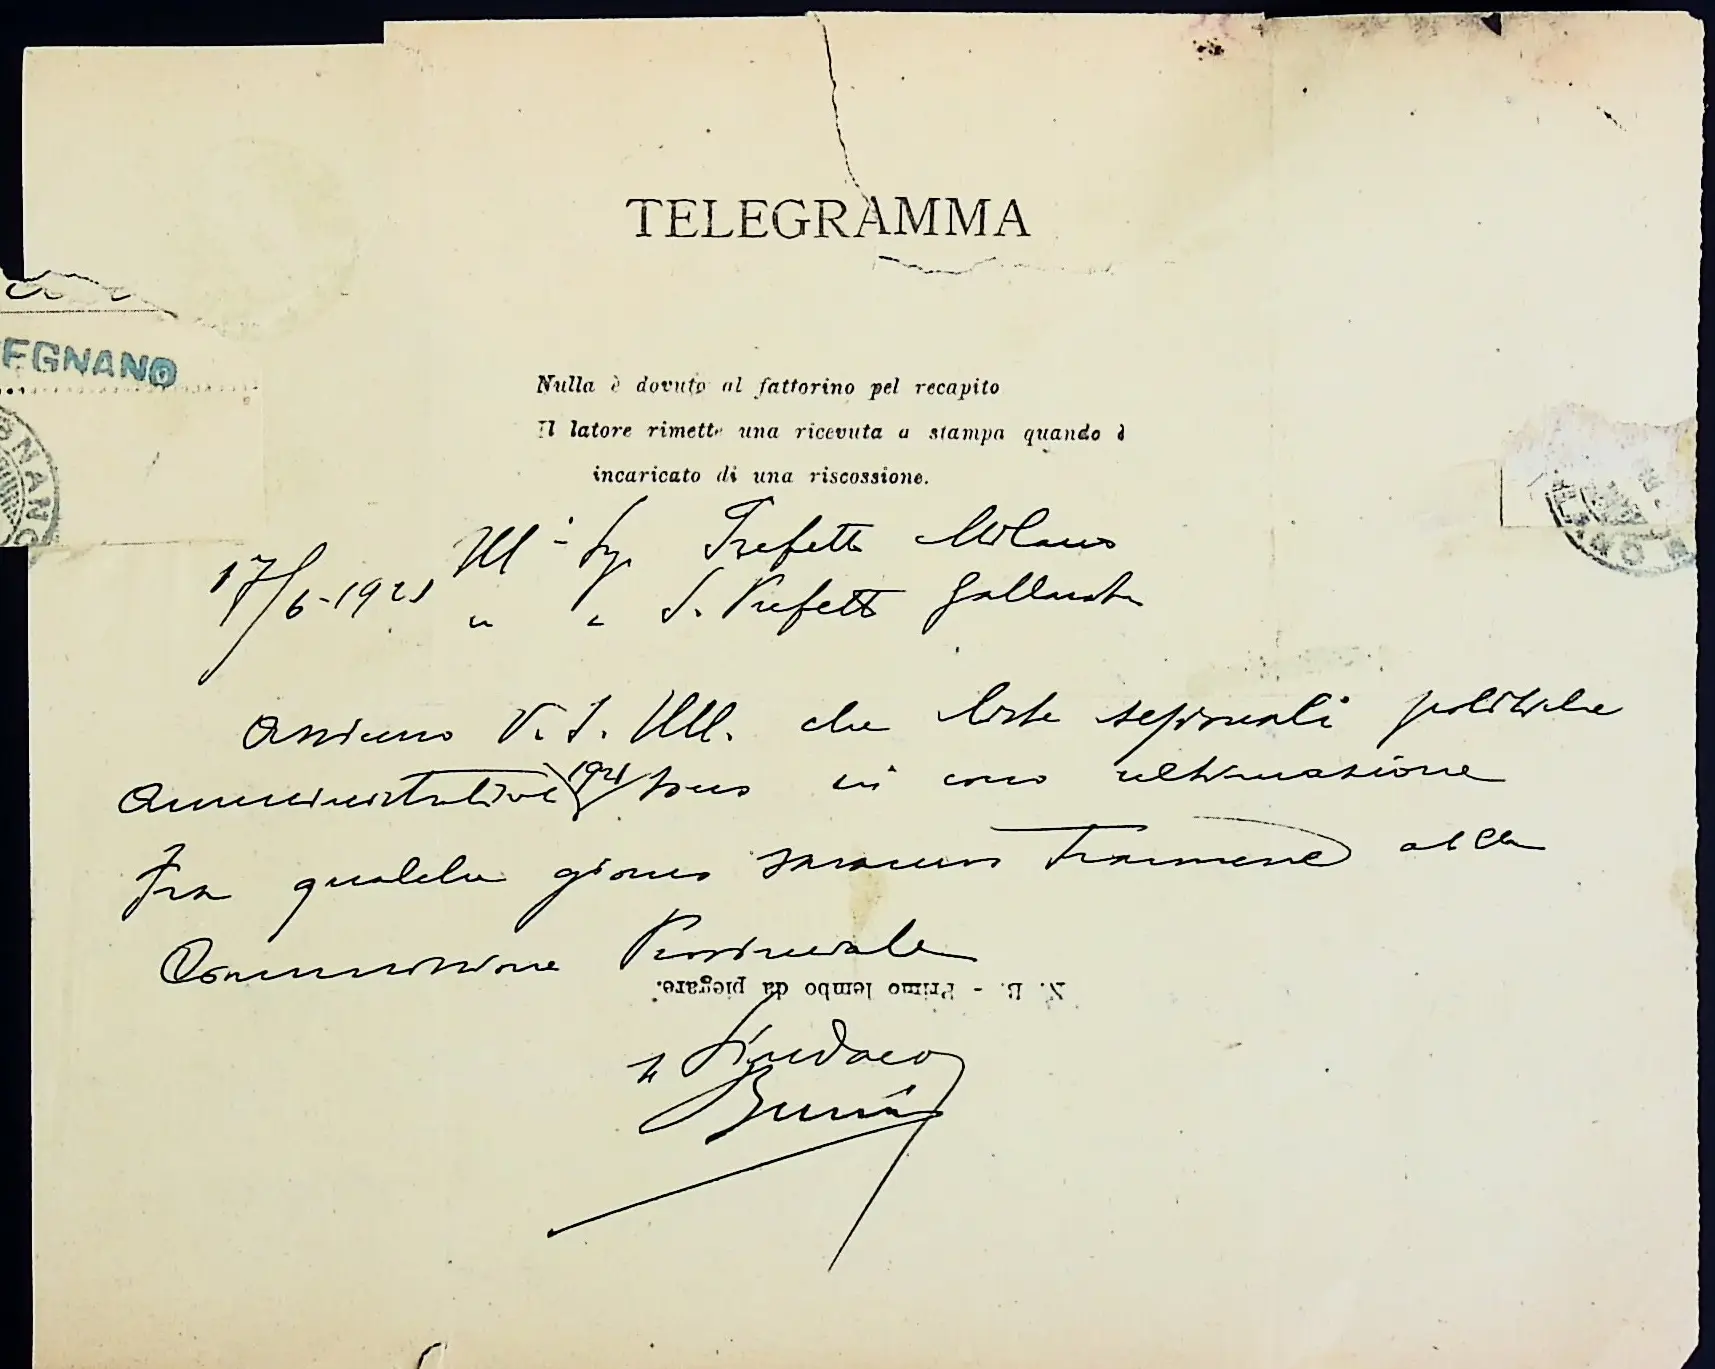 TELEGRAMMA
EGNANO
Nulla è dovuto al fattorino pel recapito
Il latore rimette una ricevuta a stampa quando è
incaricato di una riscossione.
Ill Sig. Prefetto Milano
17/6-1921 " " S. Prefetto Gallarate
Assicuro V. S. Ill. che liste sezionali politiche
amministrative 1921 sono in corso ultimazione
Fra qualche giorno saranno trasmesse alla
Commissione Provinciale
N. B. - Primo lembo da piegare.
Il Sindaco